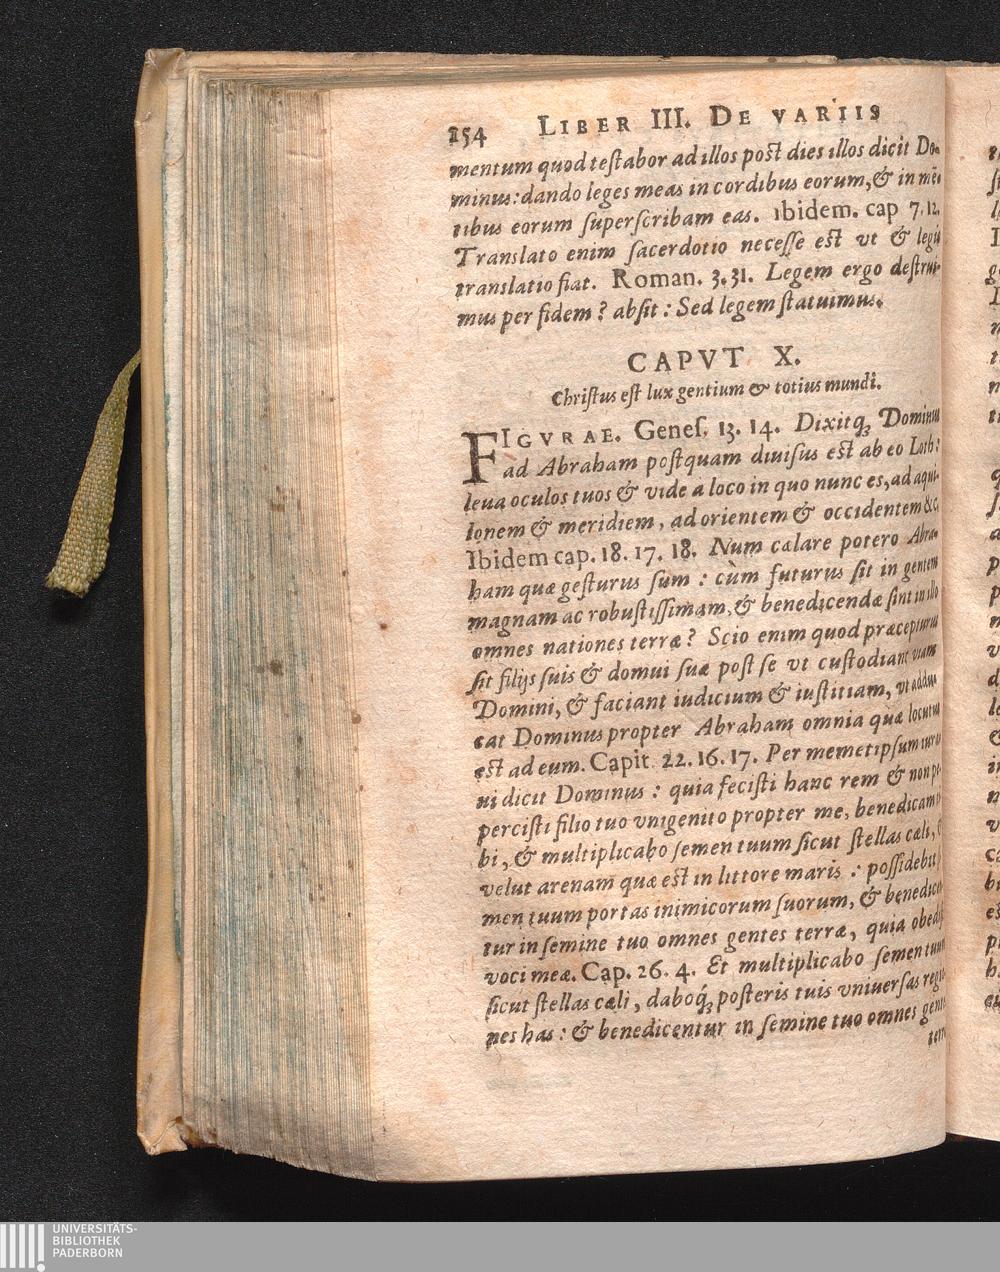 254 LIBER III. DE VARIIS
mentum quod teſtabor ad illos poſt dies illos dicit Do-
minus: dando leges meas in cordibus eorum, & in mē-
tibus eorum ſuperſcribam eas. ibidem. cap 7. 12.
Translato enim ſacerdotio neceſſe eſt vt & legis
translatio fiat. Roman. 3. 31. Legem ergo deſtrui-
mus per fidem? abſit: Sed legem ſtatuimus.
CAPVT X.
Chriſtus eſt lux gentium & totius mundi.
FIGVRAE. Geneſ. 13. 14. Dixitq; Dominus
ad Abraham poſtquam diuiſus eſt ab eo Loth:
leua oculos tuos & vide a loco in quo nunc es, ad aqui-
lonem & meridiem, ad orientem & occidentem &c.
Ibidem cap. 18. 17. 18. Num calare potero Abra-
ham quæ geſturus ſum: cùm futurus ſit in gentem
magnam ac robuſtiſſimam, & benedicendæ ſint in illo
omnes nationes terræ? Scio enim quod præcepturus
ſit filijs ſuis & domui ſuæ poſt ſe vt cuſtodiant viam
Domini, & faciant iudicium & iuſtitiam, vt addu-
cat Dominus propter Abraham omnia quæ locutus
eſt ad eum. Capit. 22. 16. 17. Per memetipſum iura
ui dicit Dominus: quia feciſti hanc rem & non pe-
perciſti filio tuo vnigenito propter me, benedicam ti
bi, & multiplicabo ſemen tuum ſicut ſtellas cæli,
velut arenam quæ eſt in littore maris: poſſidebit
men tuum portas inimicorum ſuorum, & benedicen
tur in ſemine tuo omnes gentes terræ, quia obediſ
voci meæ. Cap. 26. 4. Et multiplicabo ſemen tuum
ſicut ſtellas cæli, daboq́; poſteris tuis vniuerſas regio
nes has: & benedicentur in ſemine tuo omnes gentes
terr
UNIVERSITÄTS-
BIBLIOTHEK
PADERBORN